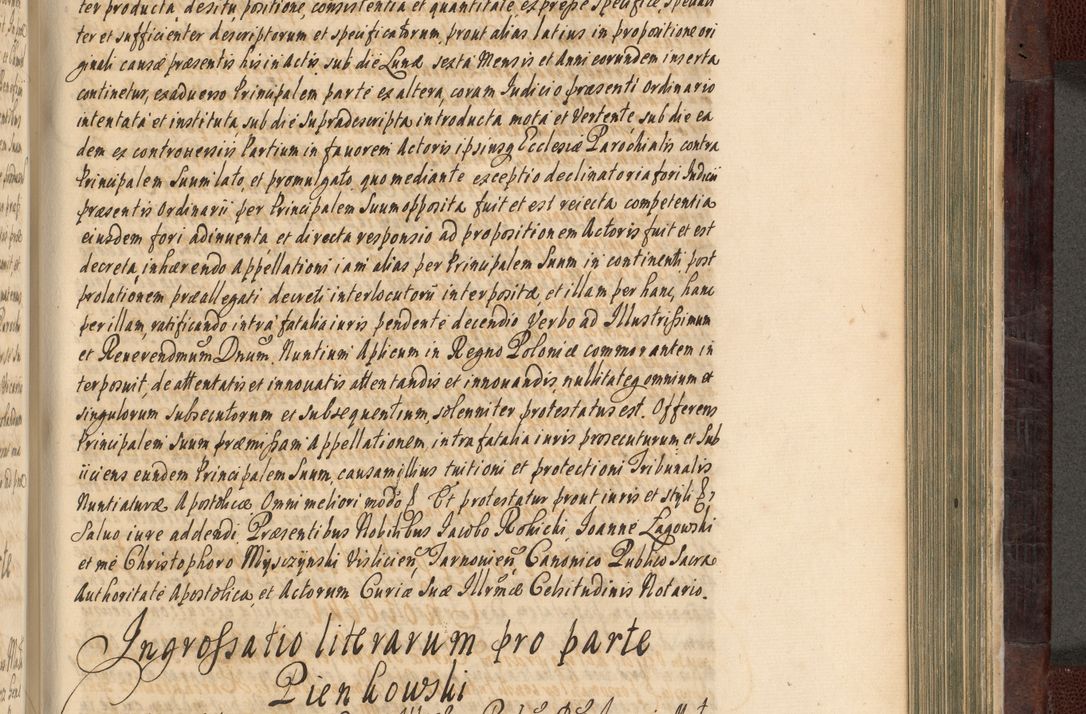 ter producta, de situ, positione, consistentia et quantitate ex prope specifice, speciali
ter et sufficienter descriptorum et specificatorum, prout alias latius in propositione ori
ginali causæ præsentis his in actis sub die Lunæ sexta Mensis et Anni eorundem inserta
continetur, ex adverso Principalem parte ex altera, coram Iudicio præsenti Ordinario
intentata et instituta, sub die Supradescripta introducta mota et Vertente sub die ea
dem ex controversiis Partium in favorem Actoris ipsiusq Ecclesiæ Parochialis contra
Principalem Suum lato, et promulgato, quo mediante exceptio declinatoria fori Iudicii
præsentis Ordinarii per Principalem Suum opposita fuit et est reiecta competentia
eiusdem fori adinventa et directa responsio ad propositionem Actoris fuit et est
decreta, inhærendo Appellationi iam alias per Principalem Suum in continenti post
prolationem præallegati decreti interlocutorii interpositæ, et illam per hanc, hanc
per illam, ratificando intra fatalia iuris pendente decendio Verbo ad Illustrissimum
et Reverendmum Dnum Nuntium Aplicum in Regno Poloniæ commorantem in
terposuit, de attentatis et innovatis attentandis et innovandis nullitateq omnium et
singulorum subsecutorum et subsequentium, solenniter protestatus est. Offerens
Principalem Suum præmissam Appellationem, intra fatalia iuris prosecuturum, et Sub
iiciens eundem Principalem Suum, causam illius tuitioni et protectioni Tribunalis
Nuntiaturæ Apostolicæ Omni meliori modo Et protestatur prout iuris et styli
Salvo iure addendi Præsentibus Nobilibus Iacobo Rokicki, Ioanne Lagowski
et me Christophoro Myszczynski Vislicien, Tarnovien, Canonico Publico Sacra
Authoritate Apostolica, et Actorum Curiæ Suæ Illrmæ Celsitudinis Notario.
Ingrossatio literarum pro parte
Pienkowski